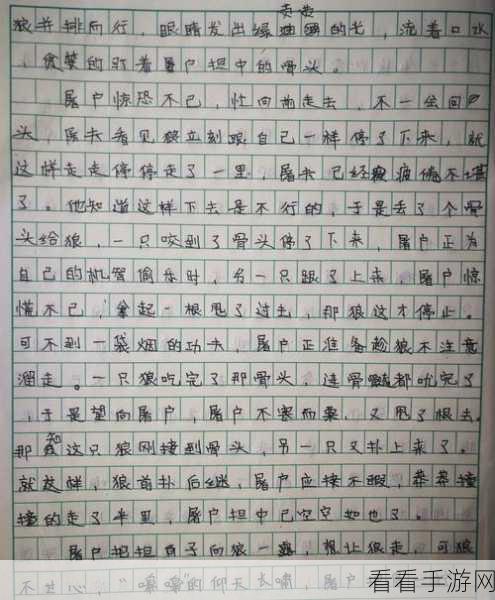 贪婪
狼并排而行，眼睛发出绿油油的光，流着口水
，贪婪的盯着屠户担中的骨头。
屠户惊恐不已，忙向前走去，不一会回
头，屠夫看见狼立刻跟自己一样停了下来，就
这样走走停停走了一里，屠夫已经疲倦不堪
了。他知道这样下去是不行的，于是丢了个骨
头给狼，一只咬到了骨头停了下来，屠户正为
自己的机智偷乐时，另一只跟了上来，屠户惊
慌不已，拿起一根甩了过去，那狼这才停止。
可不到一袋烟的功夫，屠户正准备趁狼不注意
溜走。一只狼吃完了那骨头，连骨髓都吮完了
，于是望向屠户，屠户不寒而栗，又甩了根去。
那知这只狼刚接到骨头，另一只又扑上来了。
就这样，狼首扑后继，屠户应接不暇，莽莽撞
撞的走了半里，屠户担中已空空如也了。
屠户把担子向狼一露，想让狼走，可狼
不甘心，“嗥嗥”的仰天长啸，屠户
看看手游网